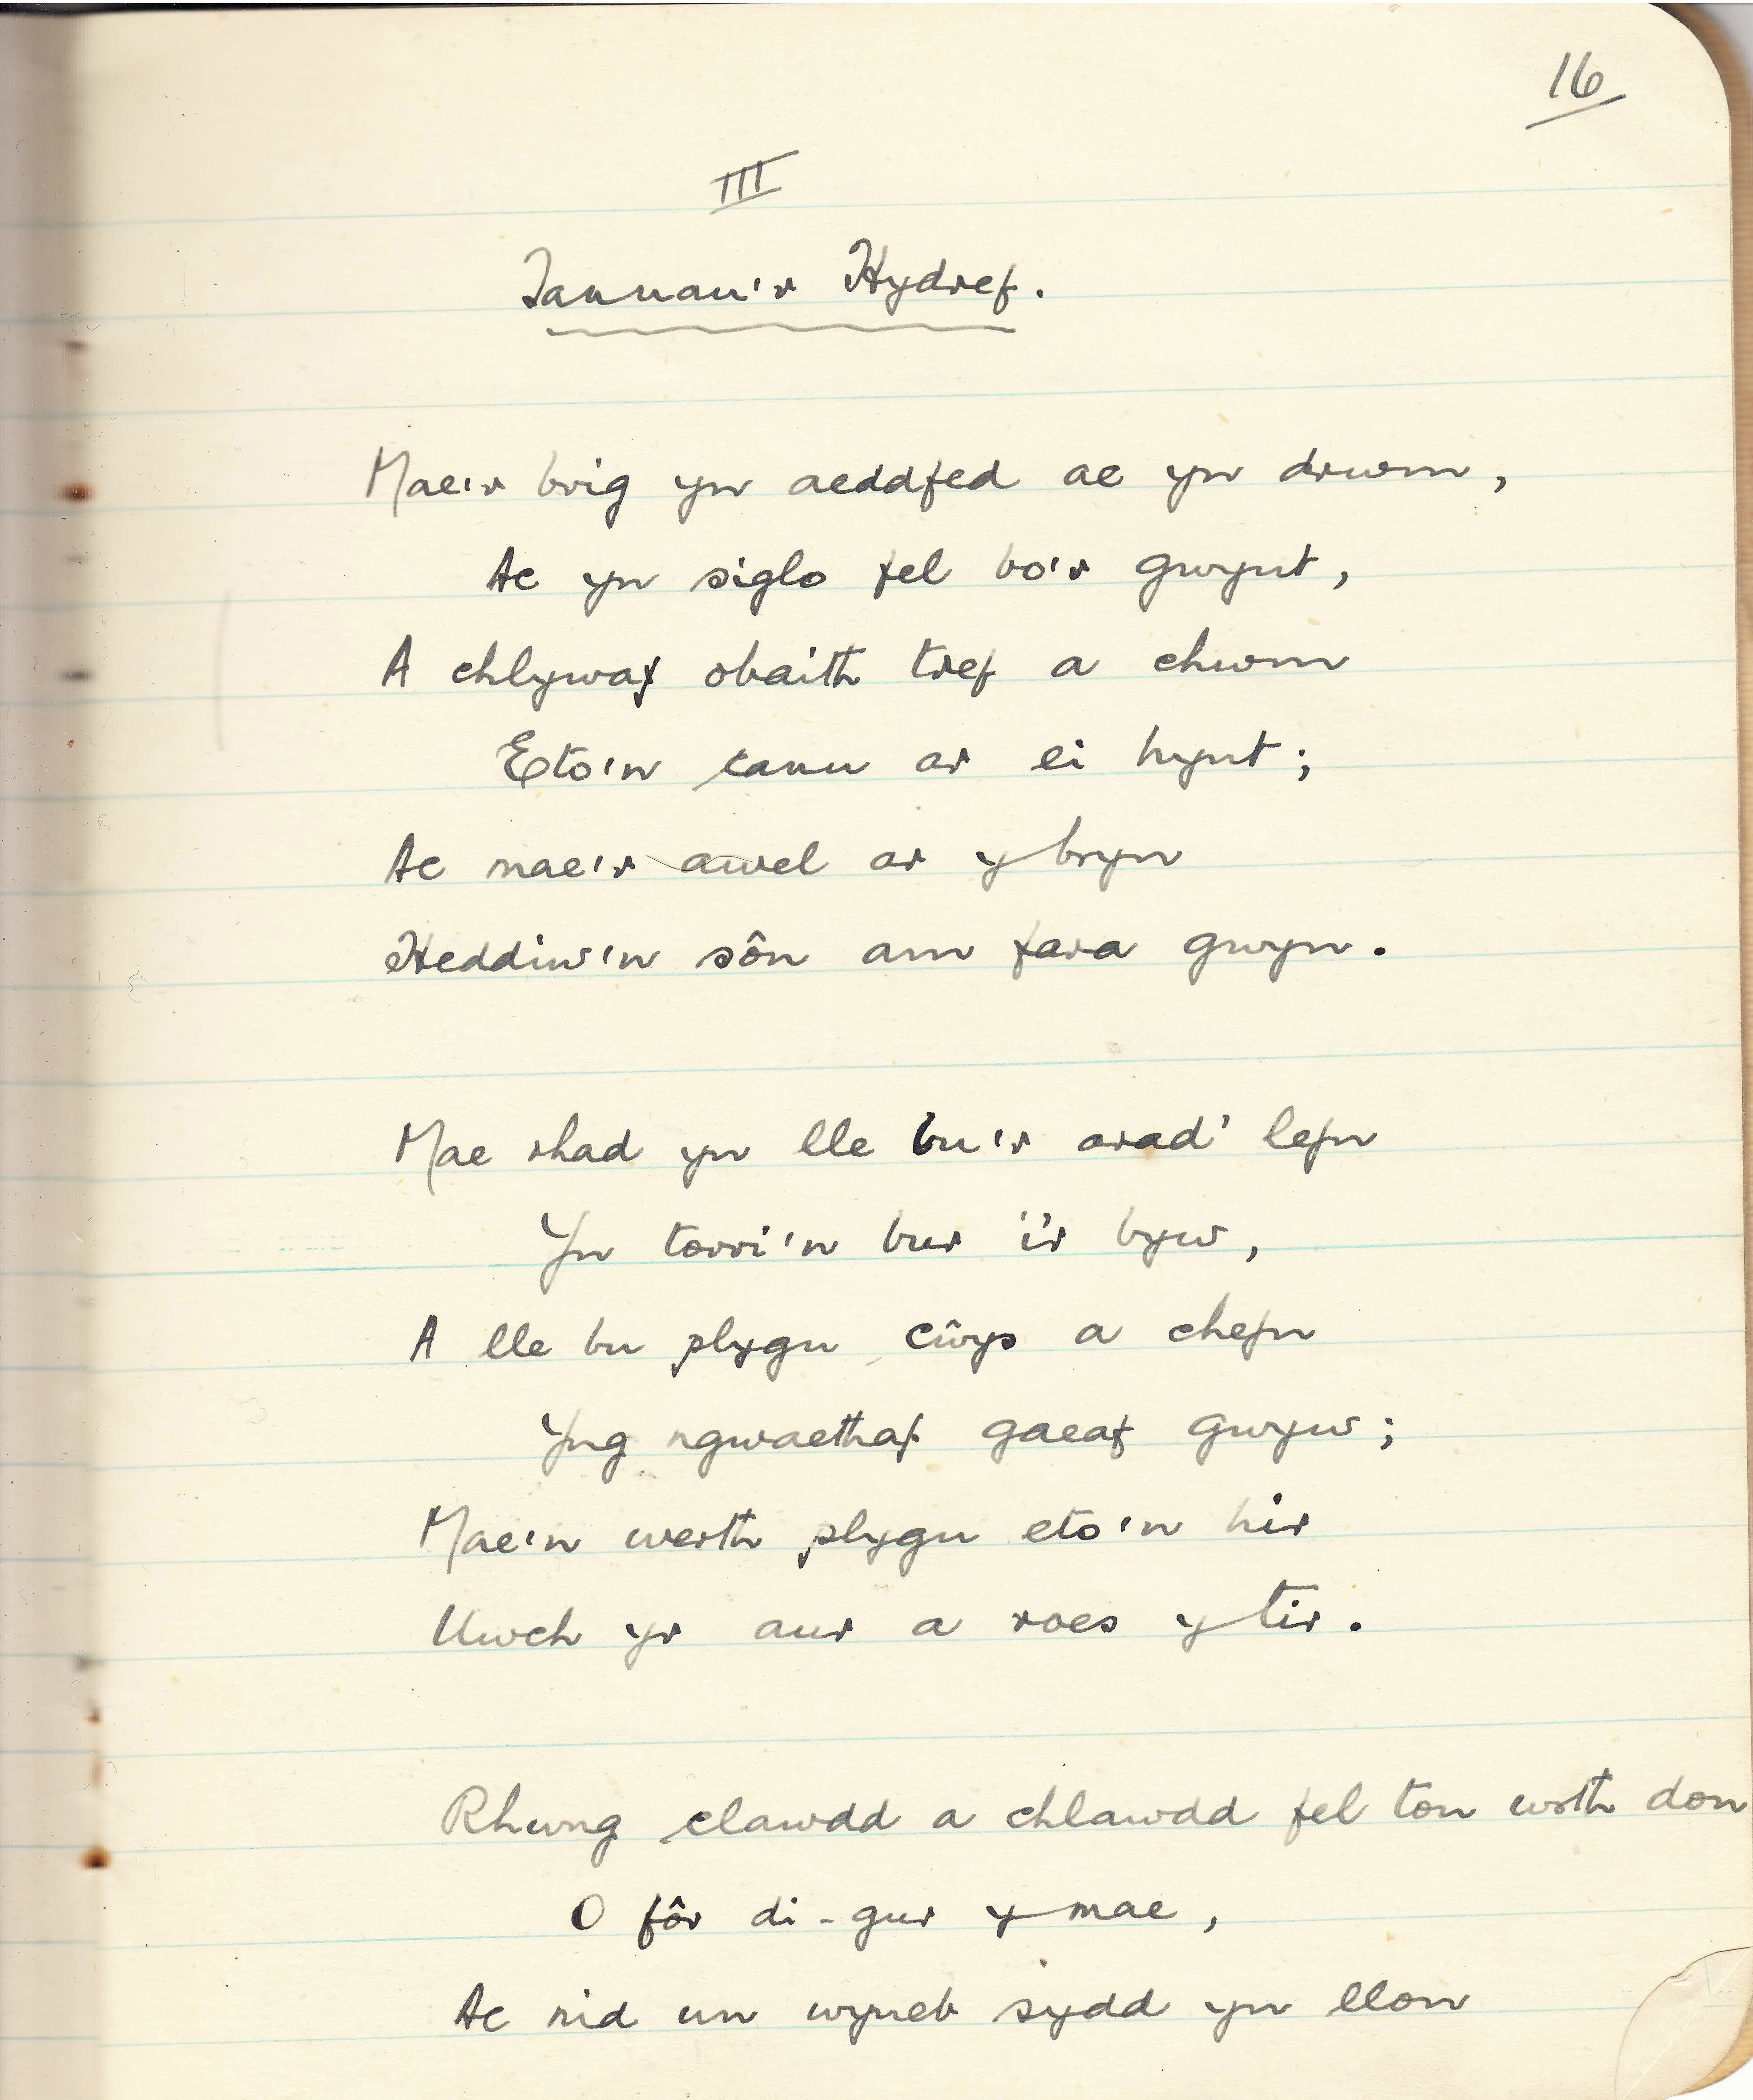 16
III
Tannau'r Hydref.
Mae'r brig yn aeddfed ac yn drwm,
Ac yn siglo fel bo'r gwynt,
A chlywaf obaith tref a chwm
Eto'n canu ar ei hynt;
Ac mae'r awel ar y bryn
Heddiw'n sôn am fara gwyn.
Mae rhad yn lle bu'r arad' lefn
Yn torri'n bur i'r byw,
A lle bu plygu cŵys a chefn
Yng ngwaethaf gaeaf gwyw;
Mae'n werth plygu eto'n hir
Uwch yr aur a roes y tir.
Rhwng clawdd a chlawdd fel ton wrth don
O fôr di-gur y mae,
Ac nid un wyneb sydd yn llon